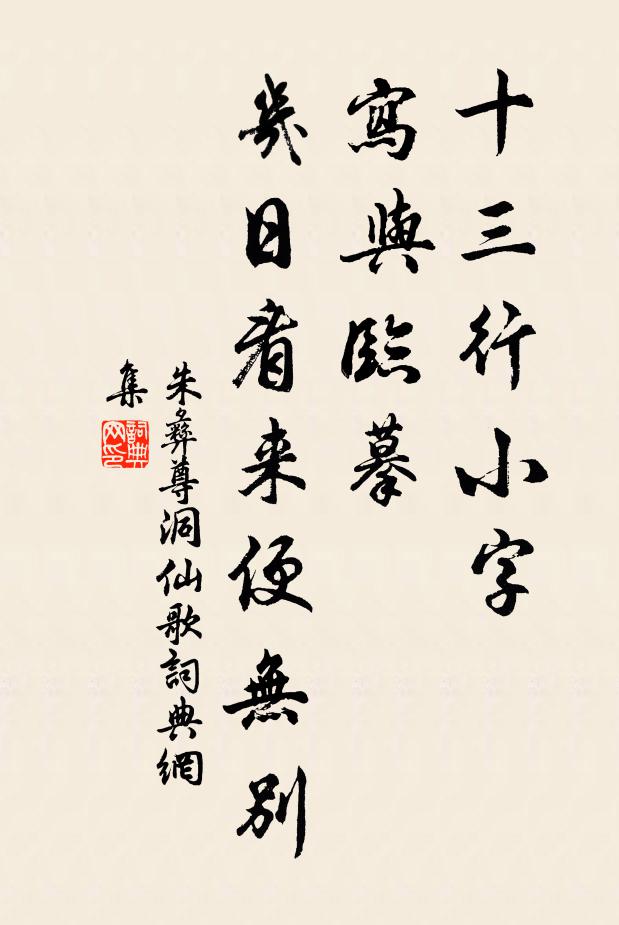 十三行小字
寫與臨摹
幾日看来便無别
朱彝尊洞仙歌詞典網
集
詞典
网印